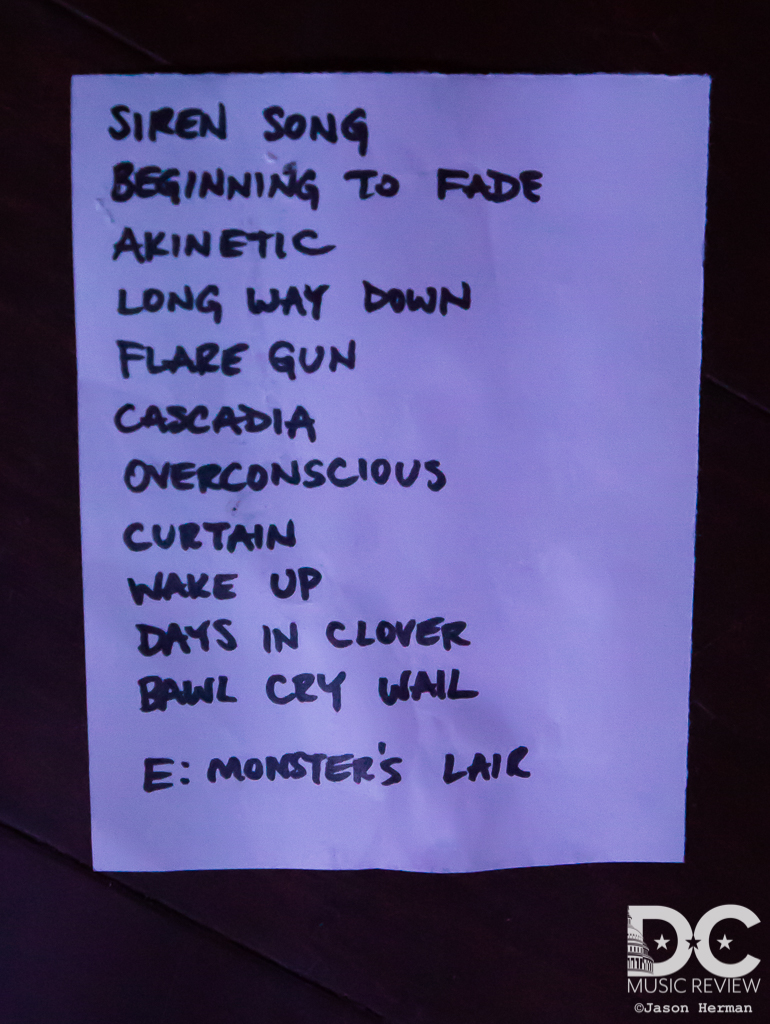 SIREN SONG
BEGINNING TO FADE
AKINETIC
LONG WAY DOWN
FLARE GUN
CASCADIA
OVERCONSCIOUS
CURTAIN
WAKE UP
DAYS IN CLOVER
BAWL CRY WAIL
E: MONSTER'S LAIR
DC
MUSIC REVIEW
©Jason Herman